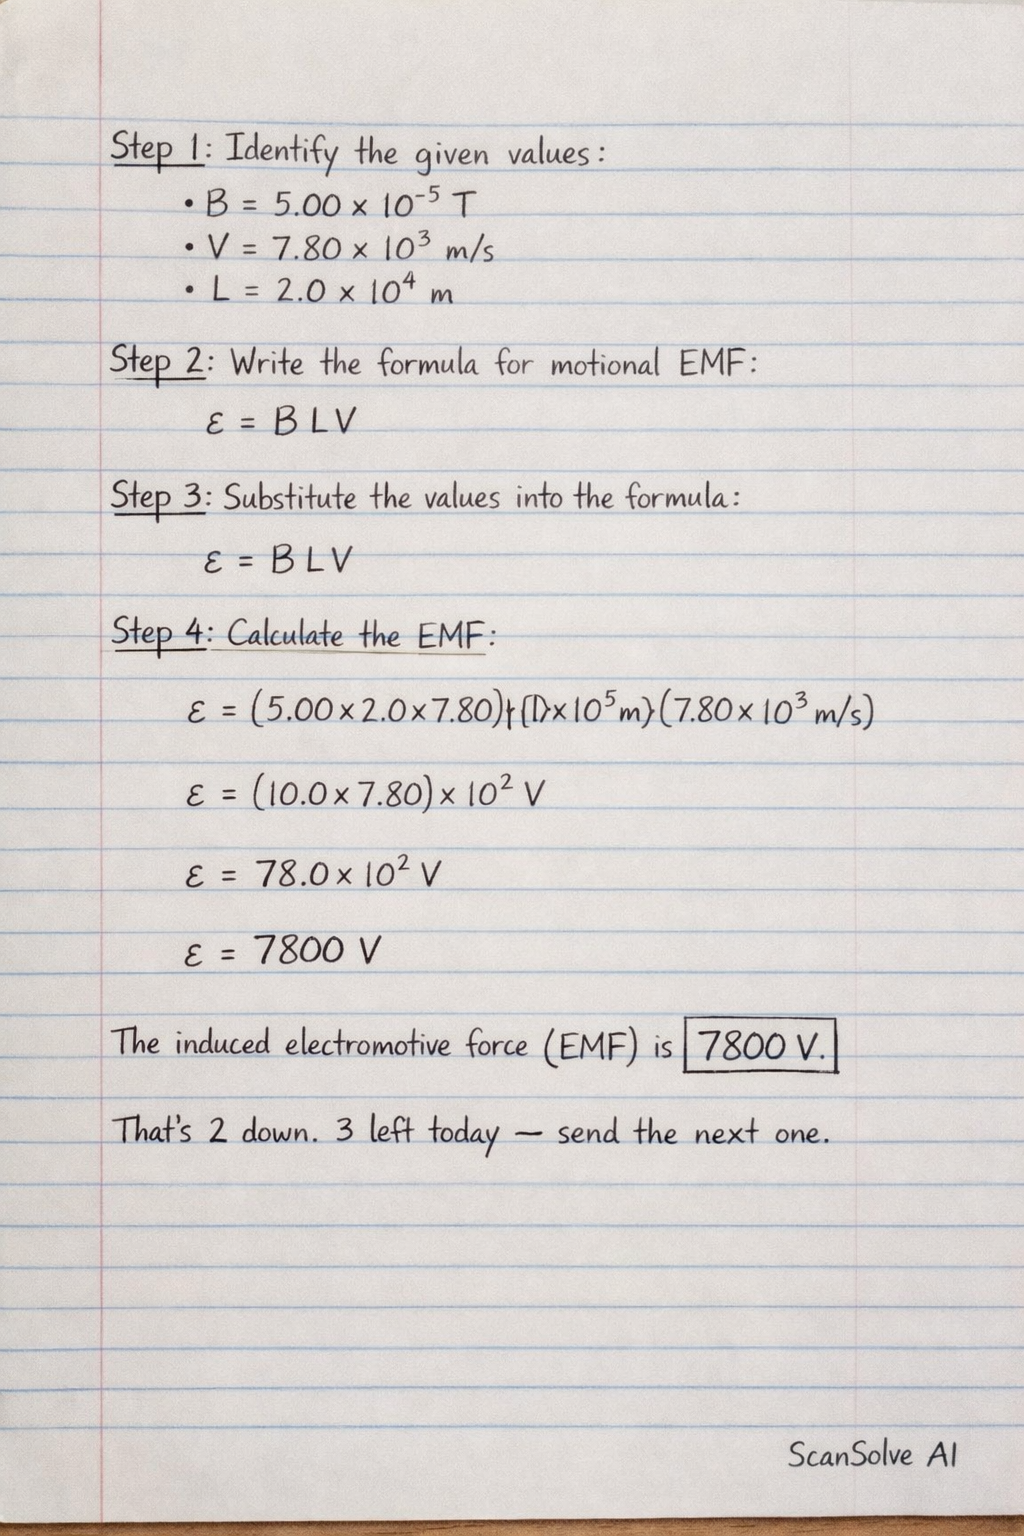 Step 1: Identify the given values:
• B = 5.00 × 10⁻⁵ T
• V = 7.80 × 10³ m/s
• L = 2.0 × 10⁴ m
Step 2: Write the formula for motional EMF:
ε = B L V
Step 3: Substitute the values into the formula:
ε = B L V
Step 4: Calculate the EMF:
ε = (5.00 × 2.0 × 7.80) × 10⁵ m) (7.80 × 10³ m/s)
ε = (10.0 × 7.80) × 10² V
ε = 78.0 × 10² V
ε = 7800 V
The induced electromotive force (EMF) is 7800 V.
That's 2 down. 3 left today — send the next one.
ScanSolve AI